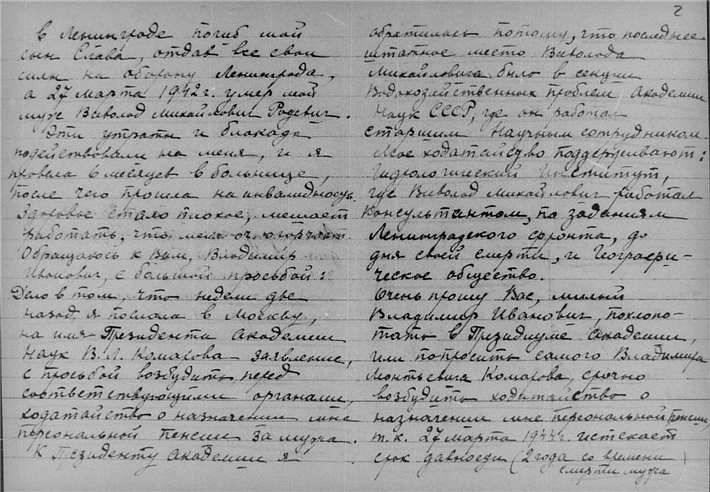 В Ленинграде погиб мой
сын Слава, отдав все свои
силы на оборону Ленинграда,
а 27 марта 1942 г. умер мой
муж Всеволод Михайлович Родевич.
Эти утраты и блокада
подействовали на меня, и я
провела 6 месяцев в больнице,
после чего прошла на инвалидность.
Здоровье стало плохое, мешает
работать, что меня огорчает.
Обращаюсь к Вам, Владимир
Иванович, с большой просьбой:
Дело в том, что недели две
назад я послала в Москву,
на имя Президента Академии
Наук В. Л. Комарова заявление,
с просьбой возбудить перед
соответствующими органами,
ходатайство о назначении мне
персональной пенсии за мужа.
К Президенту Академии я
2
обратилась потому, что последнее
штатное место Всеволода
Михайловича было в секции
Водохозяйственных проблем Академии
Наук СССР, где он работал
старшим научным сотрудником.
Мое ходатайство поддерживают:
Гидрологический Институт,
где Всеволод Михайлович работал
консультантом, по заданиям
Ленинградского фронта, до
дня своей смерти, и Географи-
ческое общество.
Очень прошу Вас, милый
Владимир Иванович, похлопо-
тать в Президиуме Академии,
или попросить самого Владимира
Леонтьевича Комарова, срочно
возбудить ходатайство о
назначении мне персональной пенсии,
т. к. 27 марта 1944 г. истекает
срок давности (2 года со времени
смерти мужа)